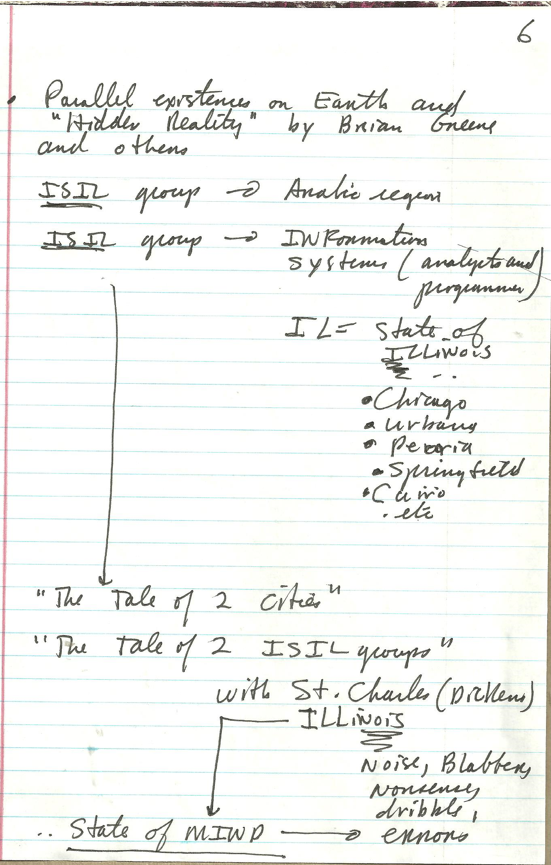 6
• Parallel existences on Earth and
"Hidden Reality" by Brian Greene
and others
ISIL group → Arabic region
ISIL group → INFormation
systems (analysts and
programmer)
IL = state of
ILLiNois
..
• Chicago
• urbana
• Peoria
• Springfield
• Cairo
. etc
"The Tale of 2 cities"
"The Tale of 2 ISIL groups"
with St. Charles (Dickens)
ILLinois
Noise, Blabbers,
nonsenses,
dribble,
.. State of MIND → errors